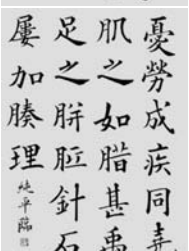 憂勞成疾同堯
肌之如腊甚禹
足之胼胝針石
屢加腠理
純平臨